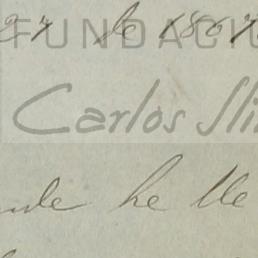 27 de 1867
FUNDACI
Carlos Sli
he lle